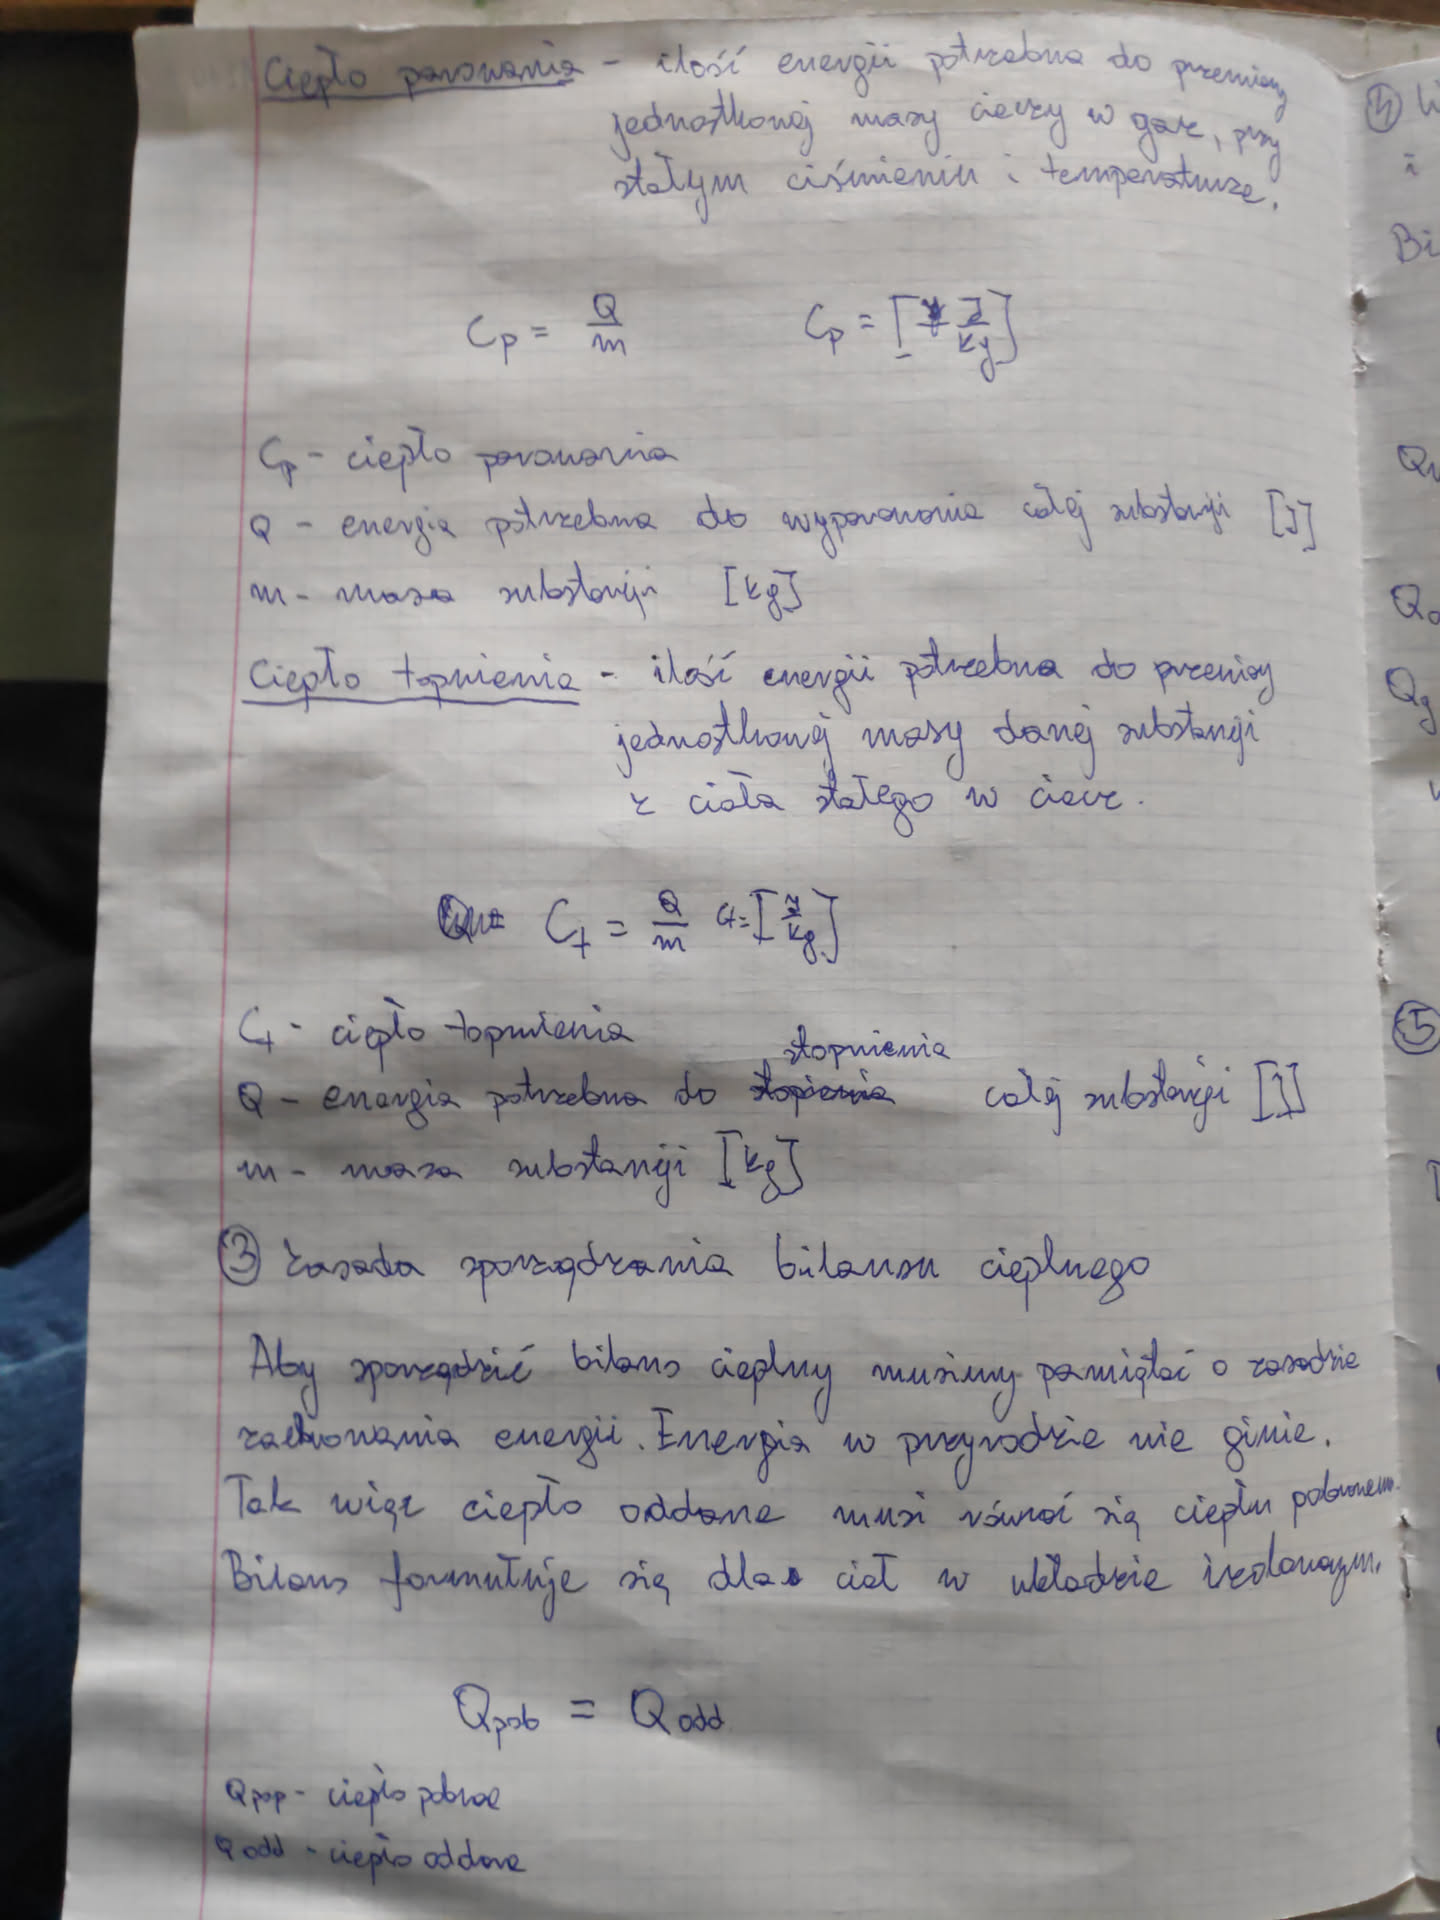 Ciepło parowania - ilość energii potrzebna do przemiany
jednostkowej masy cieczy w gaz, przy
stałym ciśnieniu i temperaturze.
Cp = Q/m Cp = [J/kg]
Cp - ciepło parowania
Q - energia potrzebna do wyparowania całej substancji [J]
m - masa substancji [kg]
Ciepło topnienia - ilość energii potrzebna do przemiany
jednostkowej masy danej substancji
z ciała stałego w ciecz.
Ct = Q/m Ct = [J/kg]
Ct - ciepło topnienia
stopnienia
Q - energia potrzebna do stopienia całej substancji [J]
m - masa substancji [kg]
③ Zasada sporządzania bilansu cieplnego
Aby sporządzić bilans cieplny musimy pamiętać o zasadzie
zachowania energii. Energia w przyrodzie nie ginie.
Tak więc ciepło oddane musi równać się ciepłu pobranemu.
Bilans formułuje się dla ciał w układzie izolowanym.
Qpob = Qodd
Qpop - ciepło pobrane
Qodd - ciepło oddane
④
i
Bi
⑤